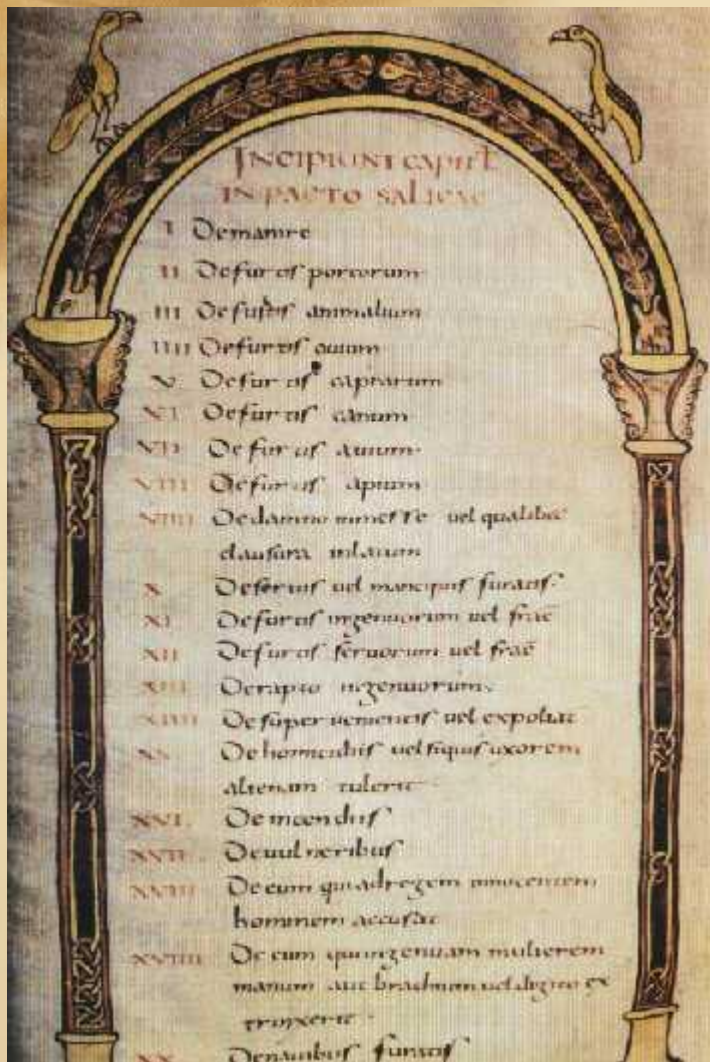 INCIPIUNT CAPITĒ
IN PACTO SALICAE
I De manire
II De furtis porcorum
III De furtis animalium
IIII De furtis ouium
V De furtis caprarum
VI De furtis canum
VII De furtis auium
VIII De furtis apium
VIIII De damno in messe uel qualibet
clausura inlatum
X De seruis uel mancipiis furatis
XI De furtis ingenuorum uel frac̄
XII De furtis seruorum uel frac̄
XIII De rapto ingenuorum
XIIII De superuenientis uel expoliat
XV De homicidiis uel siquis uxorem
alienam tulerit
XVI De incendiis
XVII De uulneribus
XVIII De eum qui ad regem innocentem
hominem accusat
XVIIII De eum qui ingenuam mulierem
manum aut brachium uel digito ex
trinxerit
XX De nauibus furatis